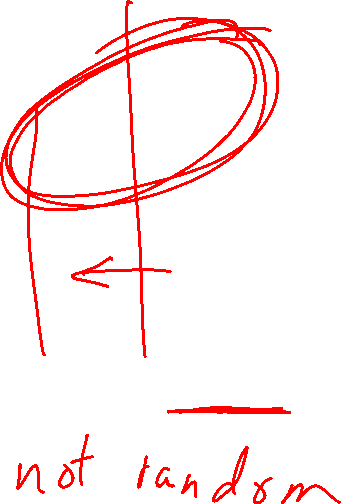 not random